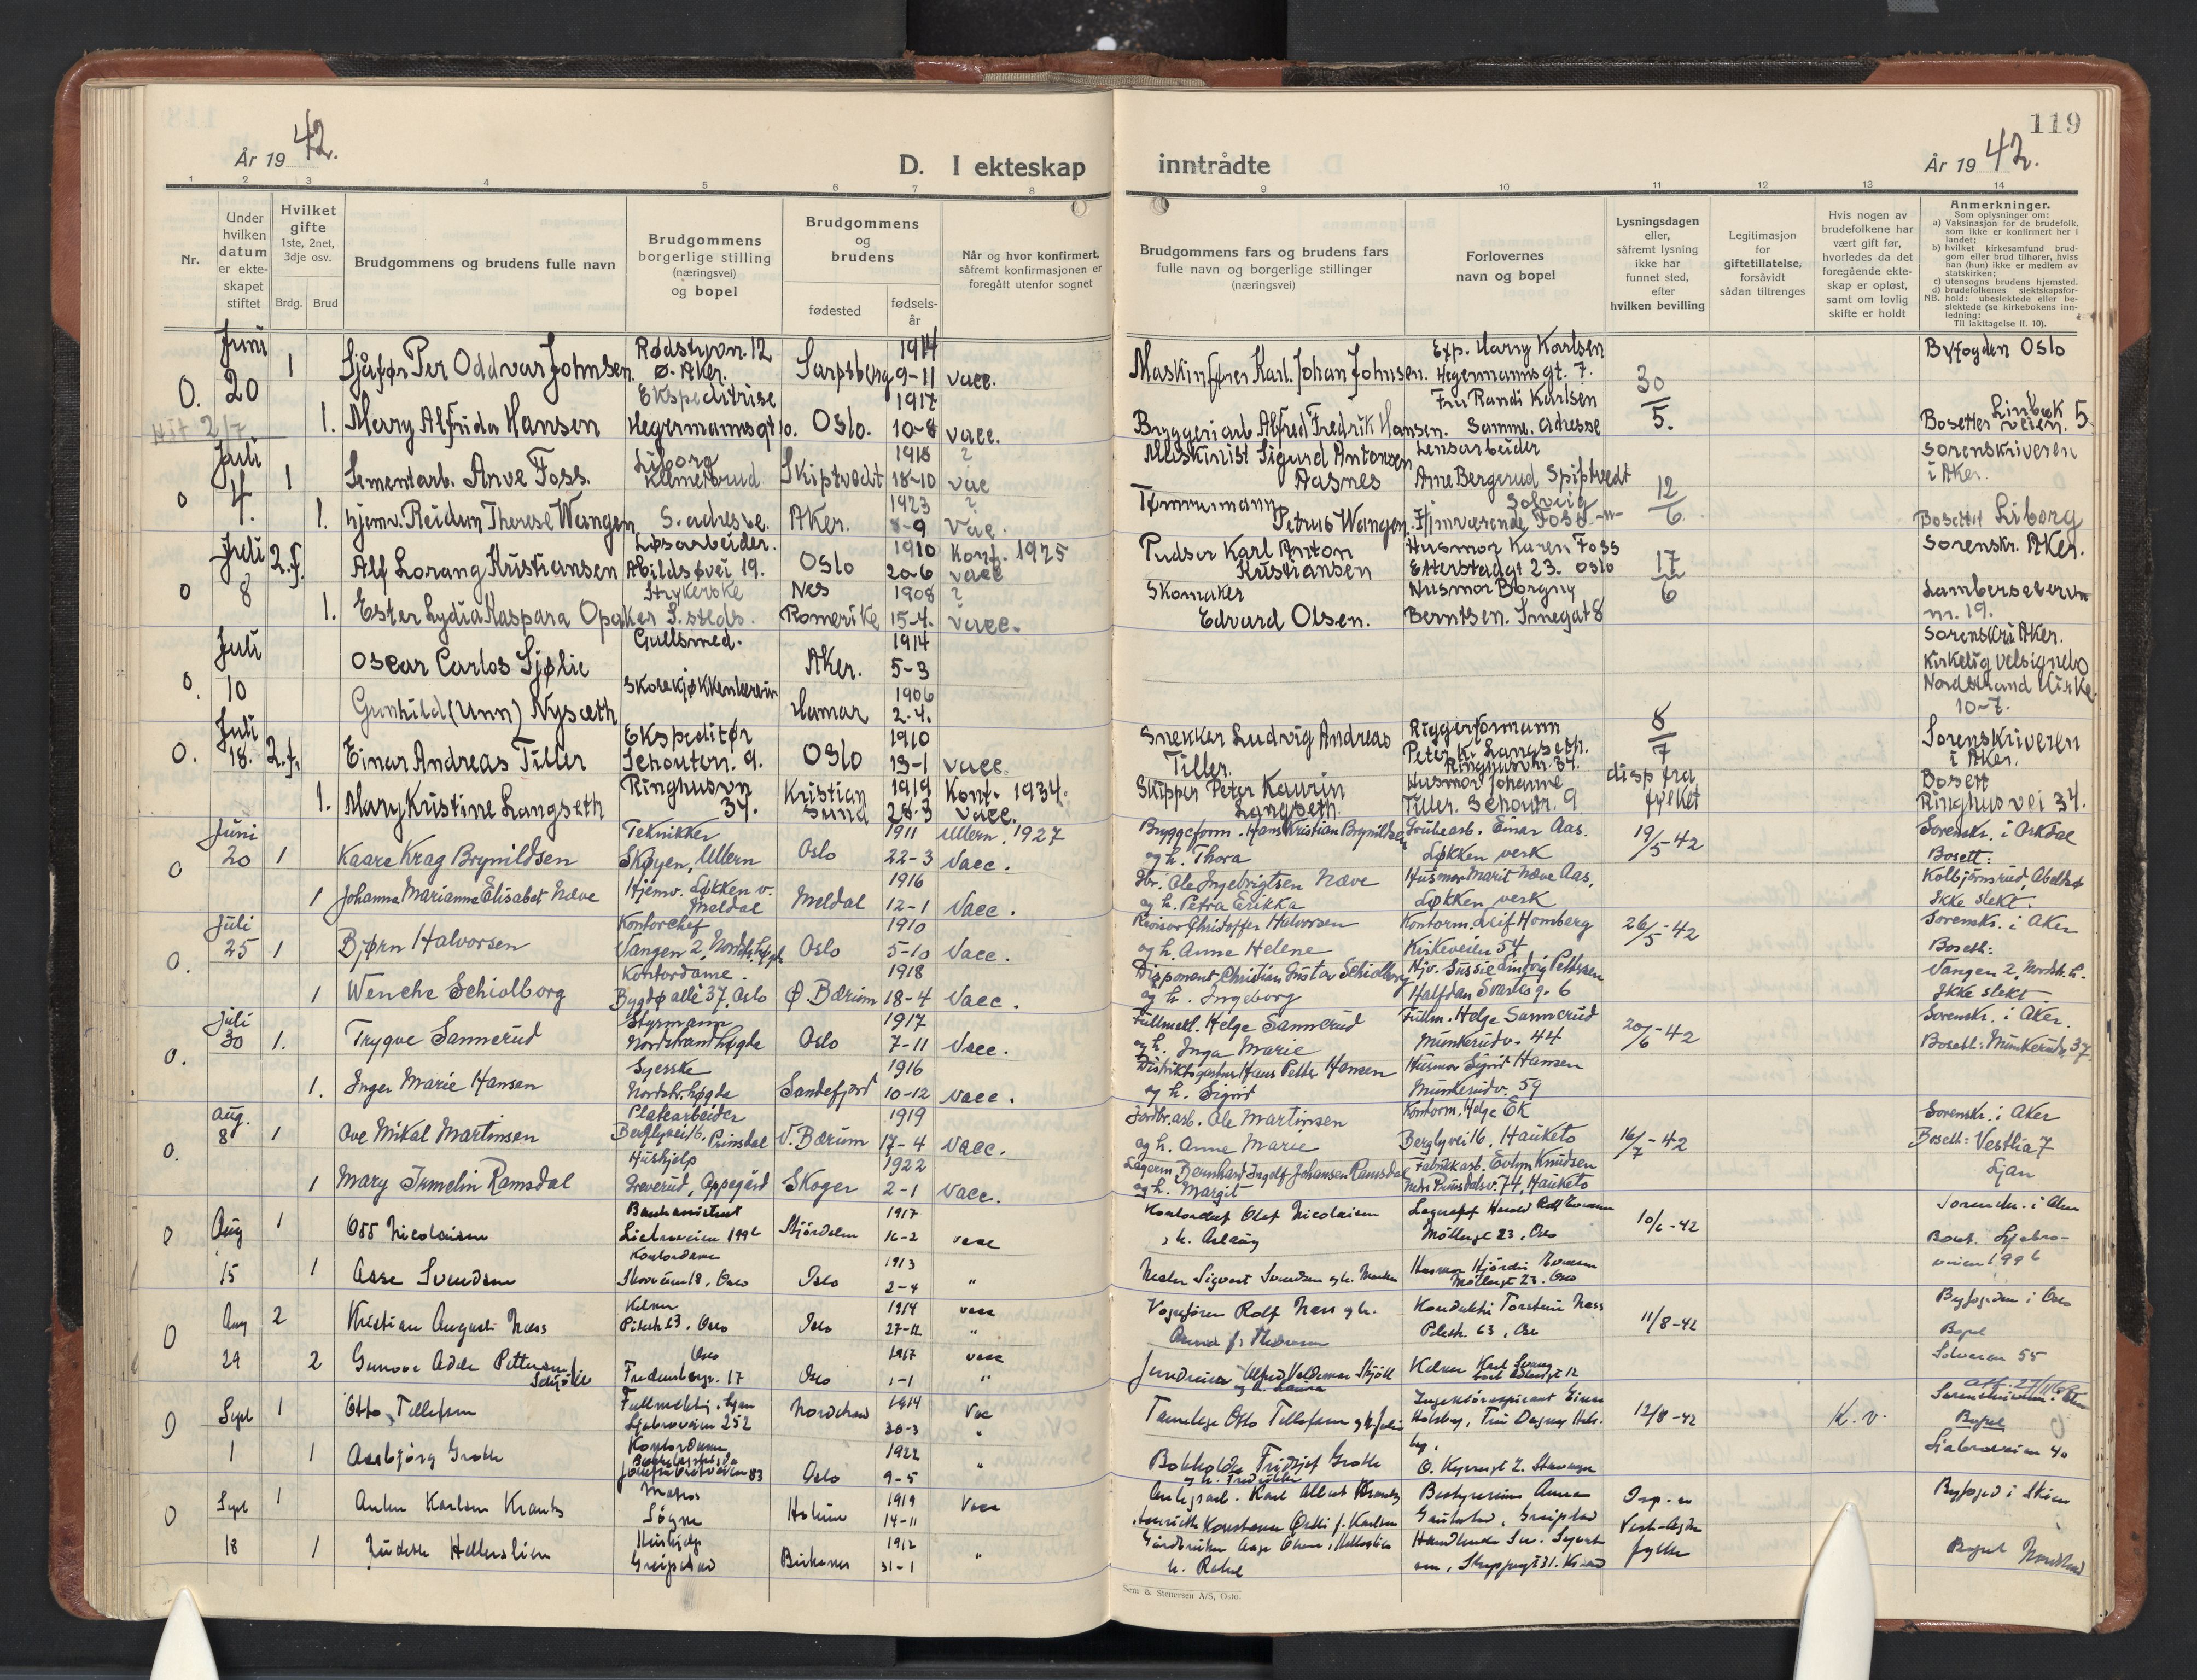 119
År 19 42.
D. I ekteskap inntrådte
År 19 42.
1 2 3 4 5 6 7 8 9 10 11 12 13 14
Nr.
Under hvilken datum er ekte-skapet stiftet
Hvilket gifte 1ste, 2net, 3dje osv.
Brdg. Brud
Brudgommens og brudens fulle navn
Brudgommens borgerlige stilling (næringsvei) og bopel
Brudgommens og brudens
fødested
fødsels-år
Når og hvor konfirmert, såfremt konfirmasjonen er foregått utenfor sognet
Brudgommens fars og brudens fars fulle navn og borgerlige stillinger (næringsvei)
Forlovernes navn og bopel
Lysningsdagen eller, såfremt lysning ikke har funnet sted, efter hvilken bevilling
Legitimasjon for giftetillatelse, forsåvidt sådan tiltrenges
Hvis nogen av brudefolkene har vært gift før, hvorledes da det foregående ekte-skap er opløst, samt om lovlig skifte er holdt
Anmerkninger.
Som oplysninger om:
a) Vaksinasjon for de brudefolk, som ikke er konfirmert her i landet;
b) hvilket kirkesamfund brud-gom eller brud tilhører, hviss han (hun) ikke er medlem av statskirken;
c) utensogns brudens hjemsted.
d) brudefolkenes slektskapsfor-
NB. hold: ubeslektede eller be-slektede (se kirkebokens inn-ledning:
Til iakttagelse II. 10).
Juni Rødstyvn. 12 1914 Exp. Harry Karlsen Byfogden Oslo
O. 20 1 Sjåfør Per Oddvar Johnsen. Ø. Aker. Sarpsborg 9-11 vacc. Maskinfører Karl Johan Johnsen. Hegermannsgt. 7. 30/5.
Ekspeditrise 1917 Fru Randi Karlsen
1. Mary Alfrida Hansen Hegermannsgt 10. Oslo. 10-8 vacc. Byggeriarb Alfred Fredrik Hansen. Samme adresse Bosetter Linbæk veien. 5
Juli Liborg 1918 ? Maskinist Sigurd Antonsen Lensarbeider Sorenskriveren
o 4. 1 Sementarb. Arve Foss. Klemetsrud Skiptvedt 18-10 vac Aasnes Arne Bergerud Spiptvedt 12/6 i Aker.
1923 ? Tømmermann Solveig
1. hjemv. Reidun Therese Wangen S. adresse. Aker. 8-9 Vac. Petrus Wangen. Hjemværende Foss -"- Bosettet Liborg
Juli Løsarbeider. 1910 Konf. 1925 Pudser Karl Anton Husmor Karen Foss Sorenskr. Aker.
o 8 2.f. Alf Lorang Kristiansen Abildsøvei 19. Oslo 20-6 vacc Kristiansen Etterstadgt 23. Oslo 17/6
Strykerske Nes 1908 ? Skomaker Husmor Borgny Lambersetervn
1. Ester Lydia Kaspara Opaker S. steds. Romerike 15-4. vacc. Edvard Olsen. Berntsen. Smegat 8 nr. 19.
Juli Gullsmed. 1914 Sorenskri Aker.
o. 10 Oscar Carlos Sjølie Aker. 5-3 Kirkelig velsignelse
1906 Nordstrand Kirke.
Gunhild (Unn) Nysæth Hamar 2-4. 10-7.
Juli Ekspeditør 1910 Snekker Ludvig Andreas Riggerformann 8/7 Sorenskriveren
O. 18. 2.f. Einar Andreas Tiller Schoutern. 9. Oslo 13-1 vacc. Tiller. Peter K. Langseth. Ringhusvn. 34. i Aker.
Ringhusvn 1919 Konf. 1934. Skipper Peter Kaurin Husmor Johanne disp fra Bosett
1. Mary Kristine Langseth 34. Kristiansund 28-3 Vacc. Langseth. Tiller. Schoutr. 9 fylket Ringhus vei 34.
Juni Teknikker 1911 Ullern. 1927 Bryggeform. Hans Kristian Brynildsen Grubearb. Einar Aas. 19/5-42 Sorenskr. i Orkdal
O 20 1 Kaare Krag Brynildsen Skøyen, Ullern Oslo 22-3 Vacc. og h. Thora Løkken verk Bosett:
Hjemv. Løkken v. 1916 Gbr. Ole Ingebrigtsen Næve Husmor Marit Næve Aas, Kolbjørnsrud, Abeldsø
1 Johanna Marianne Elisabet Næve Meldal Meldal 12-1 Vacc. og h. Petra Erikka Løkken verk Ikke slekt.
Juli Kontorchef 1910 Revisor Christoffer Halvorsen Kontorm. Leif Homberg 26/5-42 Sorenskr. i Aker
O. 25 1 Bjørn Halvorsen Vangen 2, Nordstr. høgda Oslo 5-10 Vacc. og h. Anne Helene Kirkeveien 54 Bosett:
Kontordame. 1918 Disponent Christian Gustav Schiolborg Hjv. Sussie Lindvig Pettersen Vangen 2, Nordstr. h.
1 Wenche Schiolborg Bygdø allé 37, Oslo Ø. Bærum 18-4 Vacc. og h. Ingeborg Halfdan Svartes g. 6 Ikke slekt
Juli Styrmann 1917 Fullmekt. Helge Sannerud Fullm. Helge Sannerud Sorenskr. i Aker.
O. 30 1. Trygve Sannerud Nordstrandhøgda Oslo 7-11 Vacc. og h. Inga Marie Munkerudv. 44 20/6-42 Bosett: Munkerudv. 37
Syerske 1916 Hans Petter Hansen Husmor Sigrid Hansen
1. Inger Marie Hansen Nordstr. høgda Sandefjord 10-12 vacc. og h. Sigrid Munkerudv. 59
aug. Platearbeider 1919 Jordbr. arb. Ole Martinsen Kontorm. Helge Ek Sorenskr. i Aker
O. 8 1 Ove Mikal Martinsen Berglyvei 16. Prinsdal V. Bærum 17-4 vacc. og h. Anne Marie Berglyvei 16, Hauketo 16/7-42 Bosett: Vestlia 7
Hushjelp 1922 Lagerm. Bernhard Ingolf Johansen Ramsdal Fabrikkarb. Evlyn Knudsen Ljan
1 Mary Irmelin Ramsdal Greverud, Oppegård Skoger 2-1 vacc. og h. Margit Nedre Prinsdalsv. 74, Hauketo
O Aug 1 Odd Nicolaisen Stjørdalen 1917 16-2 vacc Kontorchef Olaf Nicolaisen Møllergt 23, Oslo 10/6-42
15 1 Aase Svendsen Kontordame Oslo 1913 2-4 " Sigvart Svendsen Husmor Hjørdis Møllergt 23. Oslo
O Aug 2 Kristian August Næss Pilestr. 63, Oslo Oslo 1914 27-12 vacc Vognfører Rolf Næss og h. Konduktør Torstein Næss Pilestr. 63, Oslo 11/8-42 Byfogden i Oslo
29 2 Oslo Fredensborgv. 17 Oslo 1917 1-1 vacc Bopel Solveien 55
O Sept 1 Otto Tellefsen Fullmektig. Ljan Ljabroveien 252 Nordstrand 1914 30-3 Vac Tannlege Otto Tellefsen 12/8-42 K. v. Bopel
1 1 Aasbjørg Grotle Kontordame Oslo 1922 9-5 " Bokholder Fridtjof Grotle Ljabroveien 40
O Sept 1 Matros Søgne Holum 1919 14-11 Vacc Bestyrerinne Anna Byfoged i Skien
18 1 Hushjelp Greipstad Birkenes 1912 31-1 " h. Rakel Vest-Agder fylke Bopel Nordstrand
Sem & Stenersen A/S, Oslo.